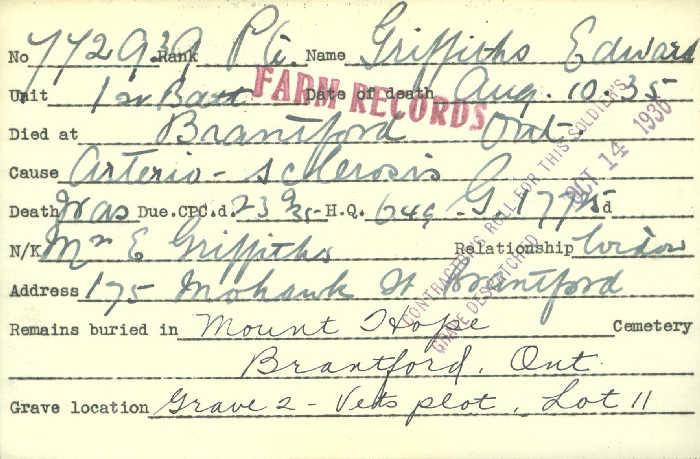 No 772939 Rank Pte. Name Griffiths Edward
Unit 1st Batt Date of death Aug. 10.35
FARM RECORDS
Died at Brantford Ont.
Cause Arterio-sclerosis
Death Was Due. CPC.d. 23 9/35 H.Q. 649 G 1775 d
N/K Mrs E Griffiths Relationship Widow
Address 175 Mohawk St Brantford
Remains buried in Mount Hope Cemetery
Brantford, Ont.
Grave location Grave 2 - Vets plot, Lot 11
CONTRACT ROLL FOR THIS SOLDIER'S
GRAVE DESPATCHED OCT 14 1936